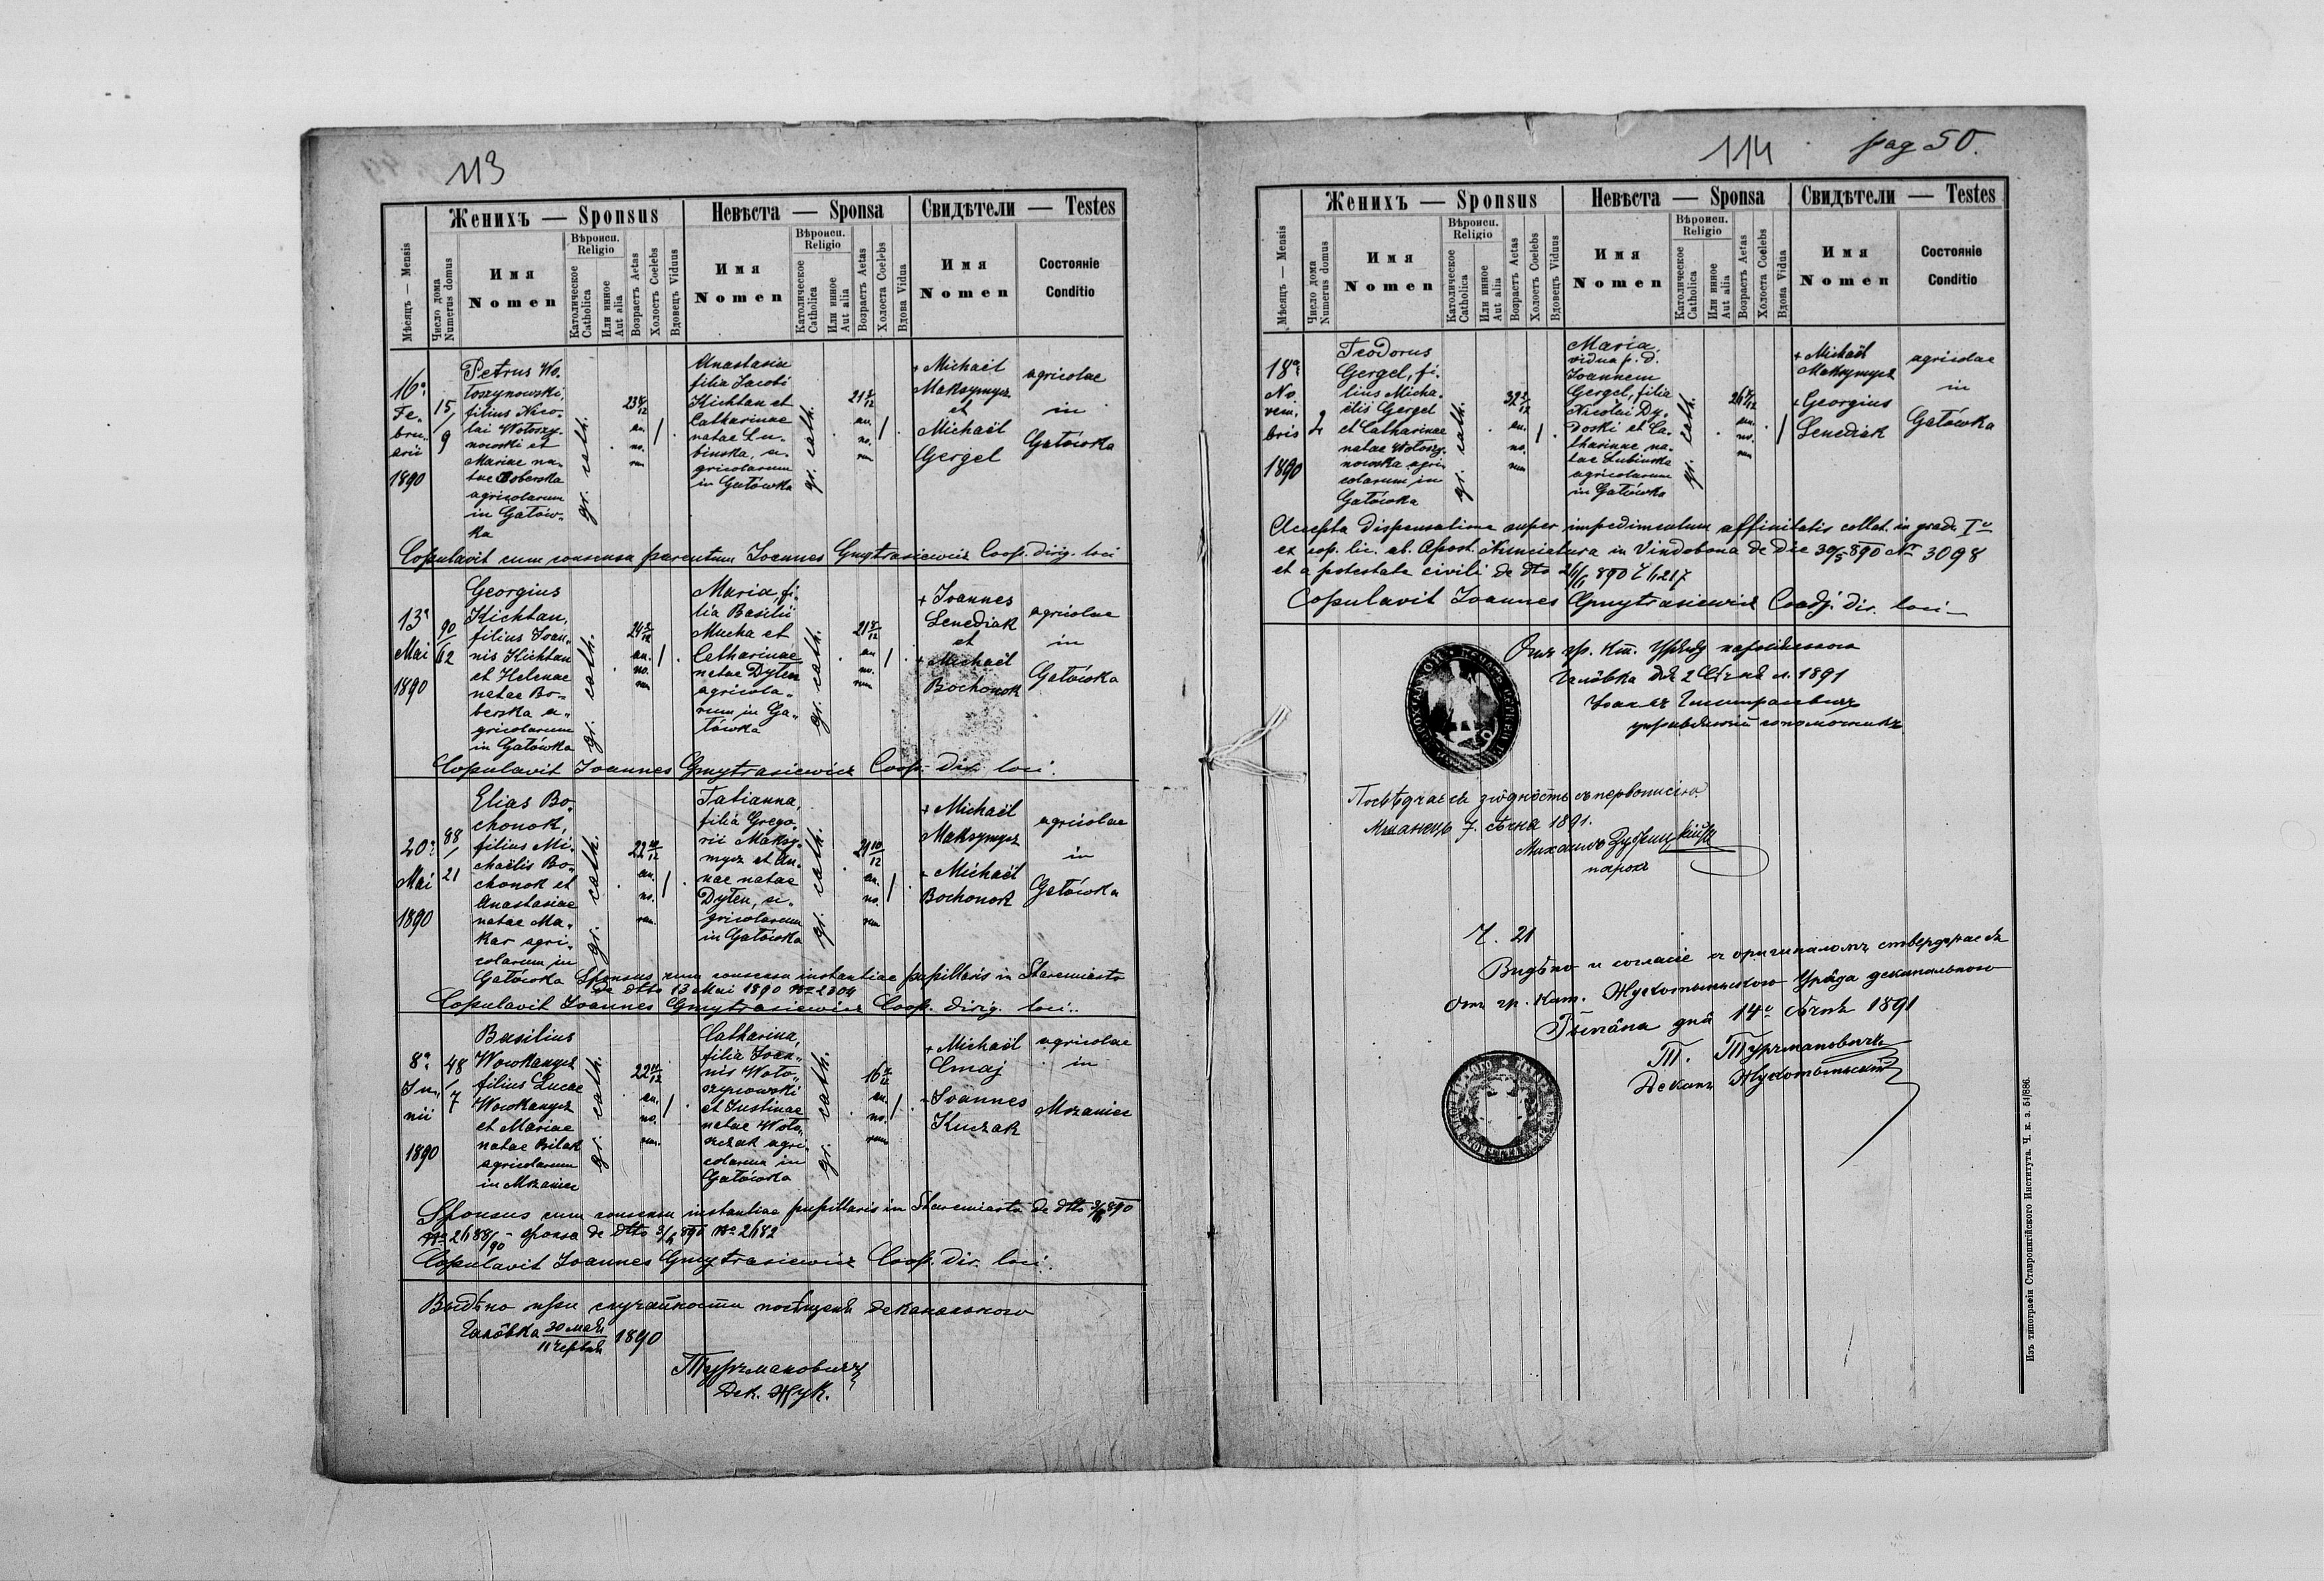 113
Женихъ — Sponsus
Невѣста — Sponsa
Свидѣтели — Testes
Мѣсяцъ — Mensis
Число дома
Numerus domus
Имя
Nomen
Вѣроисп.
Religio
Католическое
Catholica
Или инное
Aut alia
Возрастъ Aetas
Холостъ Coelebs
Вдовецъ Viduus
Имя
Nomen
Вѣроисп.
Religio
Католическое
Catholica
Или инное
Aut alia
Возрастъ Aetas
Холоста Coelebs
Вдова Vidua
Имя
Nomen
Состояніе
Conditio
16a
Fe-
bru-
arii
1890
15/
9
Petrus Wo-
łoszynowski,
filius Nico-
lai Wołoszy-
nowski et
Mariae na-
tae Boberska
agricolarum
in Gałów-
ka
gr. cath.
an.
no.
Anastasia
filia Jacobi
Kichtan et
Catharinae
natae Lu-
binska, a-
gricolarum
in Gałówka
gr. cath.
an.
no.
+ Michaël
Maksymycz
et
Michaël
Gergel
agricolae
in
Gałówka
Copulavit cum consensu parentum Joannes Gmytrasiewicz Coop. dirig. loci
13a
Mai
1890
90/
62
Georgius
Kichtan,
filius Joan-
nis Kichtan
et Helenae
natae Bo-
berska a-
gricolarum
in Gałówka
gr. cath.
an.
no.
Maria, fi-
lia Basilii
Mucha et
Catharinae
natae Dyten
agricola-
rum in Ga-
łówka
gr. cath.
an.
no.
+ Joannes
Senediak
et
+ Michaël
Bochonok
agricolae
in
Gałówka
Copulavit Joannes Gmytrasiewicz Coop. dir. loci.
20a
Mai
1890
88/
21
Elias Bo-
chonok,
filius Mi-
chaëlis Bo-
chonok et
Anastasiae
natae Ma-
kar agri-
colarum in
Gałówka
gr. cath.
22 10/12
an.
no.
Tatianna,
filia Grego-
rii Maksy-
mycz et An-
nae natae
Dyten, a-
gricolarum
in Gałówka
gr. cath.
an.
no.
+ Michaël
Maksymycz
+ Michaël
Bochonok
agricolae
in
Gałówka
Sponsus cum consensu instantiae pupillaris in Staremiasto
de dtto 13 Mai 1890 No 2304
Copulavit Joannes Gmytrasiewicz Coop. dirig. loci.
8a
Ju-
nii
1890
48/
7
Basilius
Wowkanycz
filius Lucae
Wowkanycz
et Mariae
natae Bilak
agricolarum
in Mszaniec
gr. cath.
an.
no.
Catharina,
filia Joan-
nis Woło-
szynowski
et Justinae
natae Woło-
szczak agri-
colarum in
Gałówka
gr. cath.
an.
no.
+ Michaël
Cmaj
Joannes
Kuczak
agricolae
in
Mszaniec
Sponsus cum consensu instantiae pupillaris in Staremiasto de dtto 3/6 890
sponsa de dtto 3/6 890 No 2482
Copulavit Joannes Gmytrasiewicz Coop. dir. loci.
Видѣно при случайности посѣщенія деканального
Галôвка 30 мая/11 червня 1890
Турчмановичъ
Дек. Жук.
114
pag 50.
Женихъ — Sponsus
Невѣста — Sponsa
Свидѣтели — Testes
Мѣсяцъ — Mensis
Число дома
Numerus domus
Имя
Nomen
Вѣроисп.
Religio
Католическое
Catholica
Или инное
Aut alia
Возрастъ Aetas
Холостъ Coelebs
Вдовецъ Viduus
Имя
Nomen
Вѣроисп.
Religio
Католическое
Catholica
Или инное
Aut alia
Возрастъ Aetas
Холоста Coelebs
Вдова Vidua
Имя
Nomen
Состояніе
Conditio
18a
No-
vem-
bris
1890
Teodorus
Gergel, fi-
lius Micha-
ëlis Gergel
et Catharinae
natae Wołoszy-
nowska agri-
colarum in
Gałówka
gr. cath.
an.
no.
Maria,
vidua p. d.
Joannem
Gergel, filia
Nicolai Dy-
doski et Ca-
tharinae na-
tae Lubinska
agricolarum
in Gałówka
gr. cath.
an.
no.
+ Michaël
Maksymycz
+ Georgius
Senediak
agricolae
in
Gałówka
Accepta dispensatione super impedimentum affinitatis collat. in gradu I
ex cop. lic. ab. Apost. Nunciatura in Vindobona de die 30/5 890 No 3098
et a potestate civili de dto
Copulavit Joannes Gmytrasiewicz Coadj. dir. loci
Отъ гр. кат. Уряду парохіального
Галôвка дня 2 Сѣчня р. 1891
Іоаннъ Гмитрасевичъ
управляючій сопомощникъ
Посвѣдчаеся згôдность съ первописію
Мшанець 7. сѣчня 1891.
Михаилъ Зубрицкій
парохъ
Ч. 21
Видѣно и согласне съ оригиналомъ стверджаеся
Отъ гр. кат. Жукотинского Уряда деканального
дня 14 сѣчня 1891
Т. Турчмановичъ
Деканъ Жукотинскій
Изъ типографіи Ставропигійского Института. Ч. к. з. 51/886.